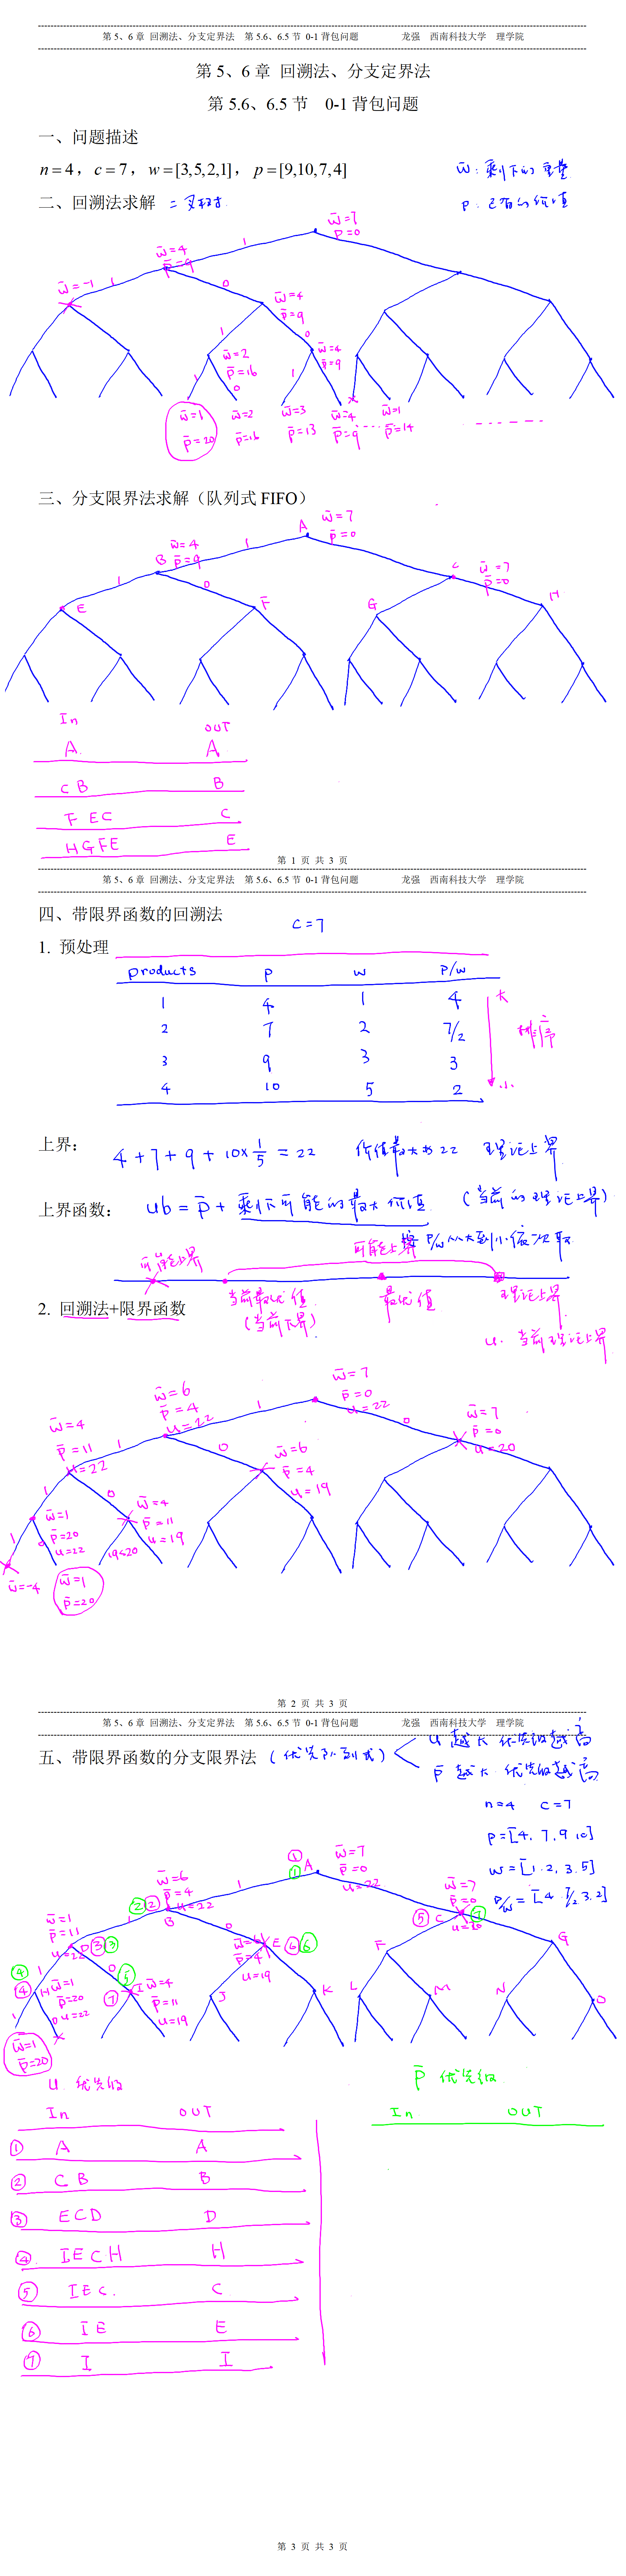 第5、6章 回溯法、分支定界法 第5.6、6.5节 0-1背包问题 龙强 西南科技大学 理学院
第5、6章 回溯法、分支定界法
第5.6、6.5节 0-1背包问题
一、问题描述
n=4，c=7，w=[3,5,2,1]，p=[9,10,7,4]
w̄: 剩下的重量
二、回溯法求解 二叉树
p̄: 已有的价值
w̄=7
p̄=0
1
w̄=4
p̄=9
w̄=-1
1
0
w̄=4
p̄=9
1
0
w̄=2
p̄=16
w̄=4
p̄=9
1
0
1
w̄=1
w̄=2
w̄=3
w̄=4
w̄=1
p̄=20
p̄=16
p̄=13
p̄=9
p̄=14
三、分支限界法求解（队列式FIFO）
A
w̄=7
p̄=0
1
w̄=4
B
p̄=9
C
w̄=7
p̄=0
1
0
E
F
G
H
In
OUT
A
A
C B
B
F E C
C
H G F E
E
第 1 页 共 3 页
第5、6章 回溯法、分支定界法 第5.6、6.5节 0-1背包问题 龙强 西南科技大学 理学院
四、带限界函数的回溯法
C=7
1. 预处理
products P w P/w
1 4 1 4 大
2 7 2 7/2 排序
3 9 3 3
4 10 5 2 小
上界：
4+7+9+10×1/5=22 价值最大为22 理论上界
上界函数：
ub=p̄+剩下可能的最大价值 (当前的理论上界)
按P/w从大到小依次取
可能上界
可能上界
当前最优值
(当前下界)
最优值
理论上界
2. 回溯法+限界函数
u: 当前理论上界
w̄=7
p̄=0
u=22
1
0
w̄=6
p̄=4
u=22
w̄=7
p̄=0
u=20
w̄=4
p̄=11
u=22
1
0
w̄=6
p̄=4
u=19
1
0
w̄=1
p̄=20
u=22
w̄=4
p̄=11
u=19
1
0
19<20
w̄=-4
w̄=1
p̄=20
第 2 页 共 3 页
第5、6章 回溯法、分支定界法 第5.6、6.5节 0-1背包问题 龙强 西南科技大学 理学院
五、带限界函数的分支限界法 (优先队列式)
u 越大 优先级越高
p̄ 越大 优先级越高
n=4 C=7
P=[4, 7, 9, 10]
w=[1, 2, 3, 5]
P/w=[4, 7/2, 3, 2]
① ① A
w̄=7
p̄=0
u=22
1
② ② B
w̄=6
p̄=4
u=22
⑤ C ⑦
w̄=7
p̄=0
u=20
w̄=1
p̄=11
u=22
D ③ ③
1
0
w̄=6
p̄=4
u=19
E ⑥ ⑥
F
G
④ ④ H
w̄=1
p̄=20
u=22
1
0
⑤
⑦ I
w̄=4
p̄=11
u=19
J
K
L
M
N
O
1
0
w̄=1
p̄=20
u 优先级
p̄ 优先级
In OUT
In OUT
① A A
② C B B
③ E C D D
④ I E C H H
⑤ I E C. C
⑥ I E E
⑦ I I
第 3 页 共 3 页